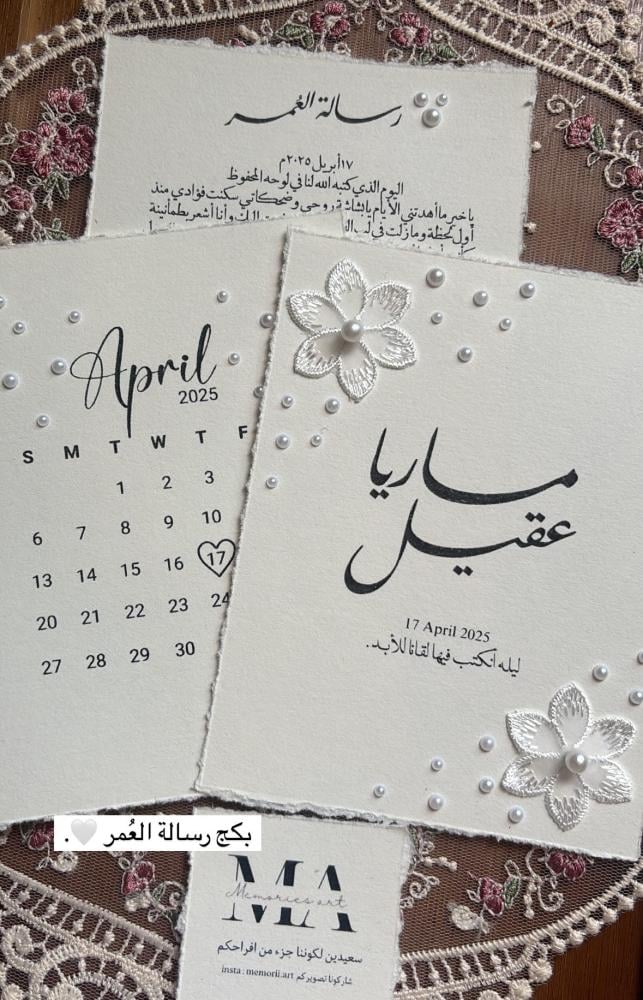 رسالة العُمر
١٧ أبريل ٢٠٢٥م
اليوم الذي كتبه الله لنا في لوحه المحفوظ
يا خير ما أهدتني الأيام يا بشاشة روحي وضحكاتي سكنت فؤادي منذ
أول لحظة ومازلت في وأنا أشعر بطمأنينة
April
2025
S M T W T F
1 2 3
6 7 8 9 10
13 14 15 16 17
20 21 22 23 24
27 28 29 30
ماريا
عقيل
17 April 2025
ليله انكتب فيها لقانا للأبد.
بكج رسالة العُمر 🤍.
MA
Memories art
سعيدين لكوننا جزء من افراحكم
شاركونا تصويركم insta : memorii.art